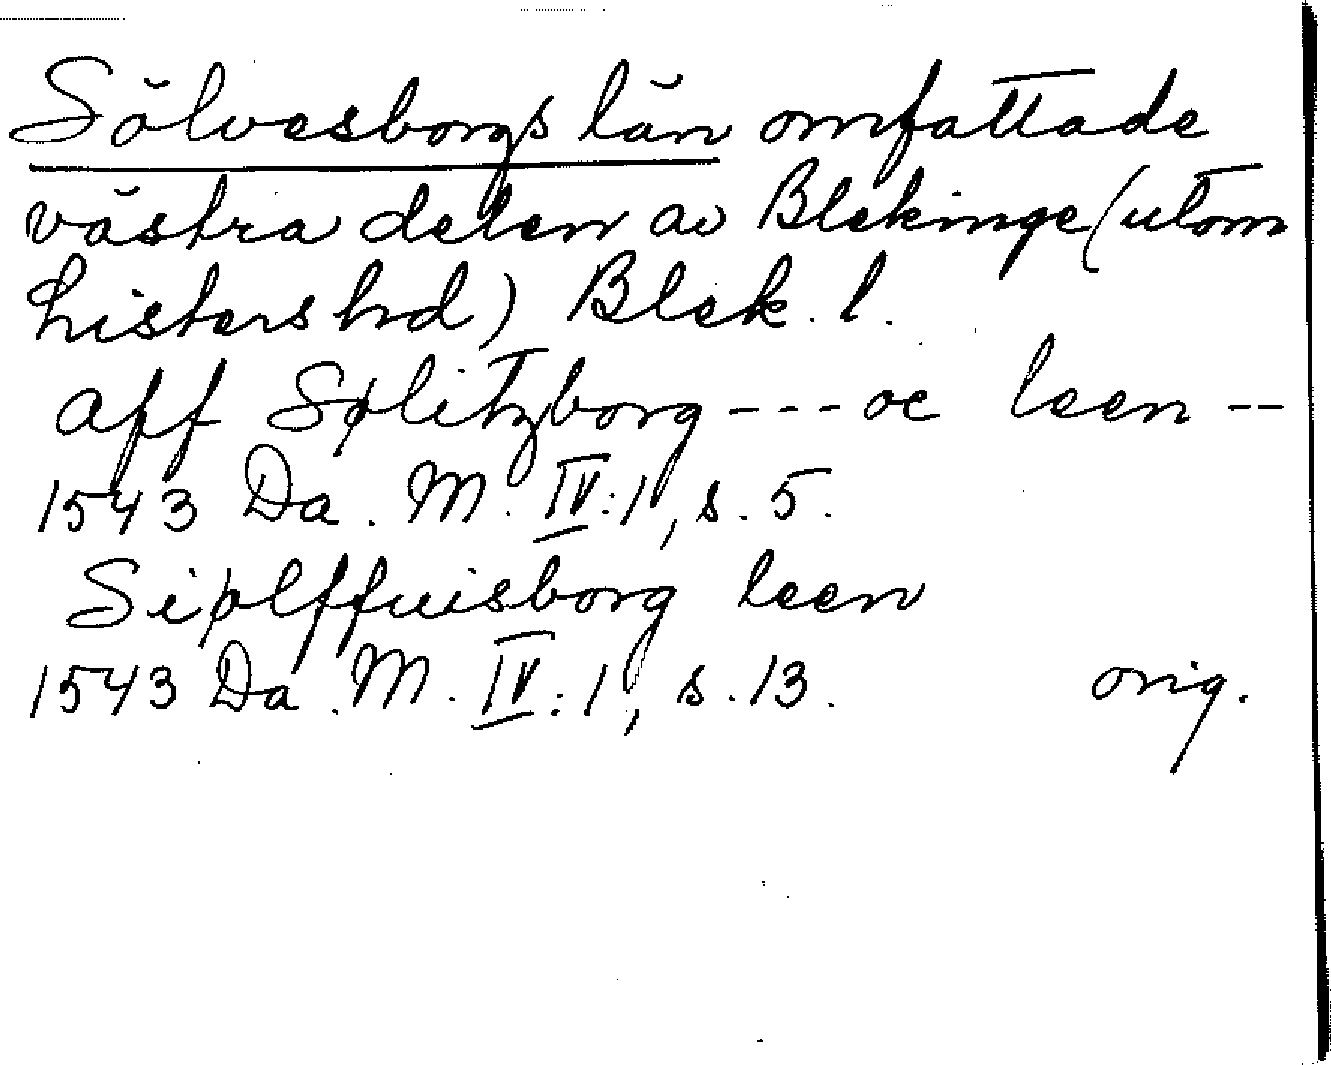 Sölvesborgs län omfattade
västra delen av Blekinge (utom
Listers hd) Blek. l.
aff Sølitzborg --- oc leen --
1543 Da. M. IV:1, s. 5.
Siølffuisborg leen
1543 Da. M. IV:1, s. 13. orig.